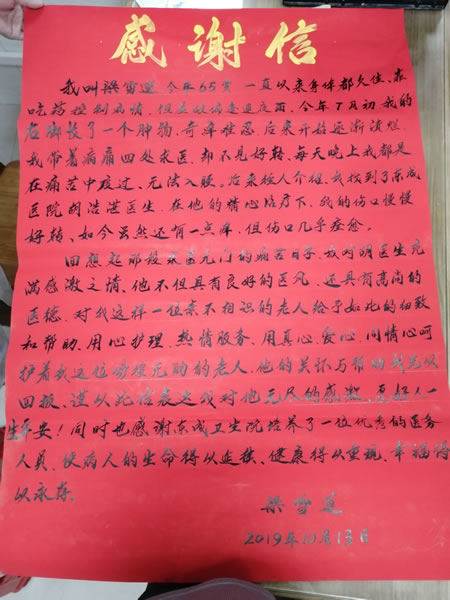 感谢信
我叫梁雪莲 今年65岁 一直以来身体都欠佳、靠
吃药控制病情，但
今年7月初，我的
右脚长了一个肿物，奇痒难忍，后来开始逐渐溃烂，
我带着病痛四处求医，却不见好转、每天晚上我都是
在痛苦中度过、无法入睡。后来经人介绍，我找到了东成
医院胡浩湛医生，在他的精心治疗下，我的伤口慢慢
好转、如今虽然还有一点痒，但伤口几乎痊愈。
回想起那段求医无门的痛苦日子，我对胡医生充
满感激之情、他不但具有良好的医风、还具有高尚的
医德，对我这样一位素不相识的老人给予如此的细致
和帮助、用心护理、热情服务、用真心、爱心、同情心呵
护着我这位孤独无助的老人，他的关怀与帮助我无以
回报、谨以此信表达我对他无尽的感激，愿好人一
生平安！同时也感谢东成卫生院培养了一位优秀的医务
人员、使病人的生命得以延续、健康得以重视、幸福得
以永存、
梁雪莲
2019年10月13日